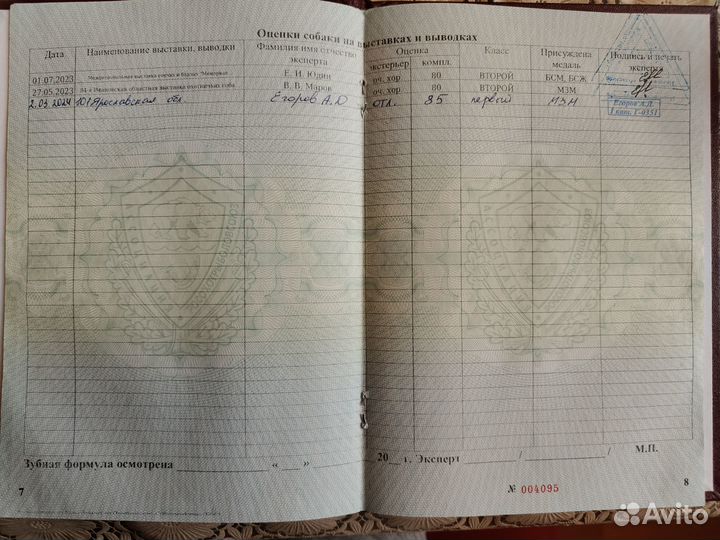 Оценки собаки на выставках и выводках
Дата Наименование выставки, выводки Фамилия имя отчество эксперта Оценка экстерьер компл. Класс Присуждена медаль Подпись и печать эксперта
01.07.2023 Межрегиональная выставка Е. И. Юдин оч. хор 80 ВТОРОЙ БСМ, БСЖ
27.05.2023 Ивановская областная выставка охотничьих соба В. В. Маров оч. хор 80 ВТОРОЙ МЗМ
2.03.2024 101 Ярославская обл. Егоров А.Ю отл. 85 первый МЗМ
Егоров А.Д.
1 кат. Г-0351
АССОЦИАЦИЯ РОСОХОТРЫБОЛОВСОЮЗ
Зубная формула осмотрена « » 20 г. Эксперт / / М.П.
7
№ 004095
8
Avito